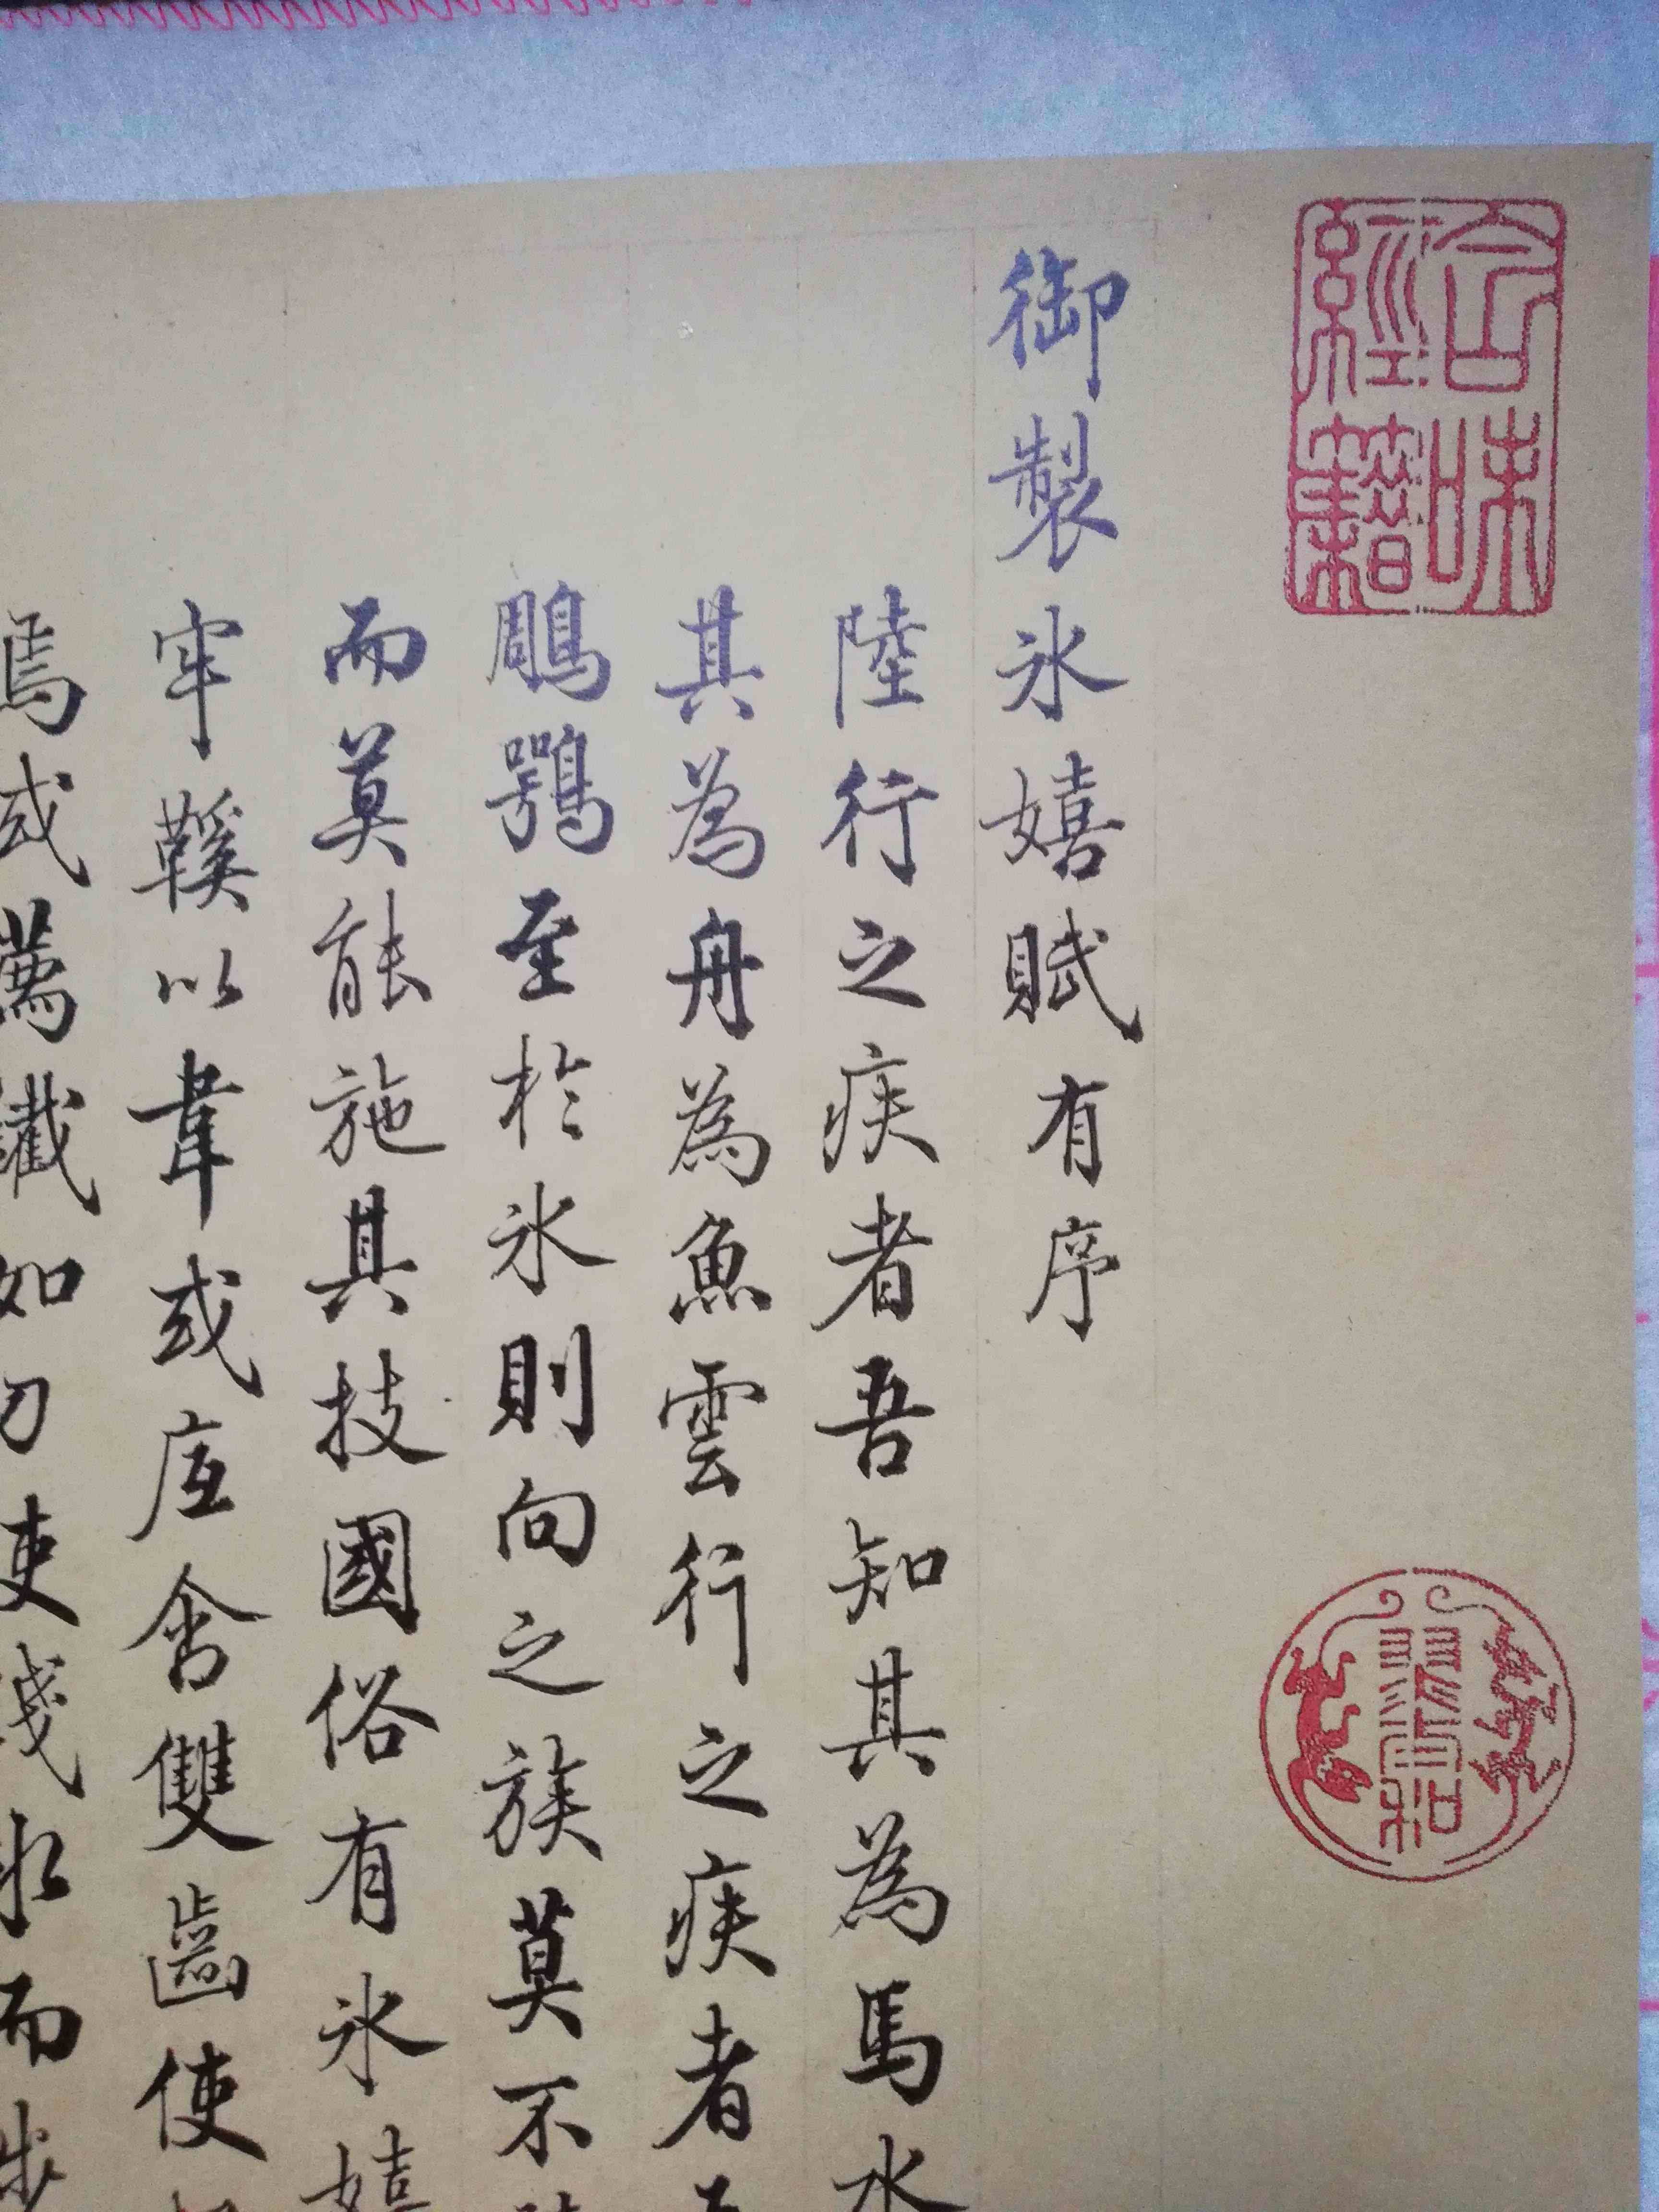 含味
經籍
御製冰嬉賦有序
陸行之疾者吾知其為馬水
其為舟為魚雲行之疾者
鵰鶚至於冰則向之族莫不
而莫能施其技國俗有冰嬉
牢鞵以韋或底含雙齒使
焉或薦鐵如刀使踐冰而步